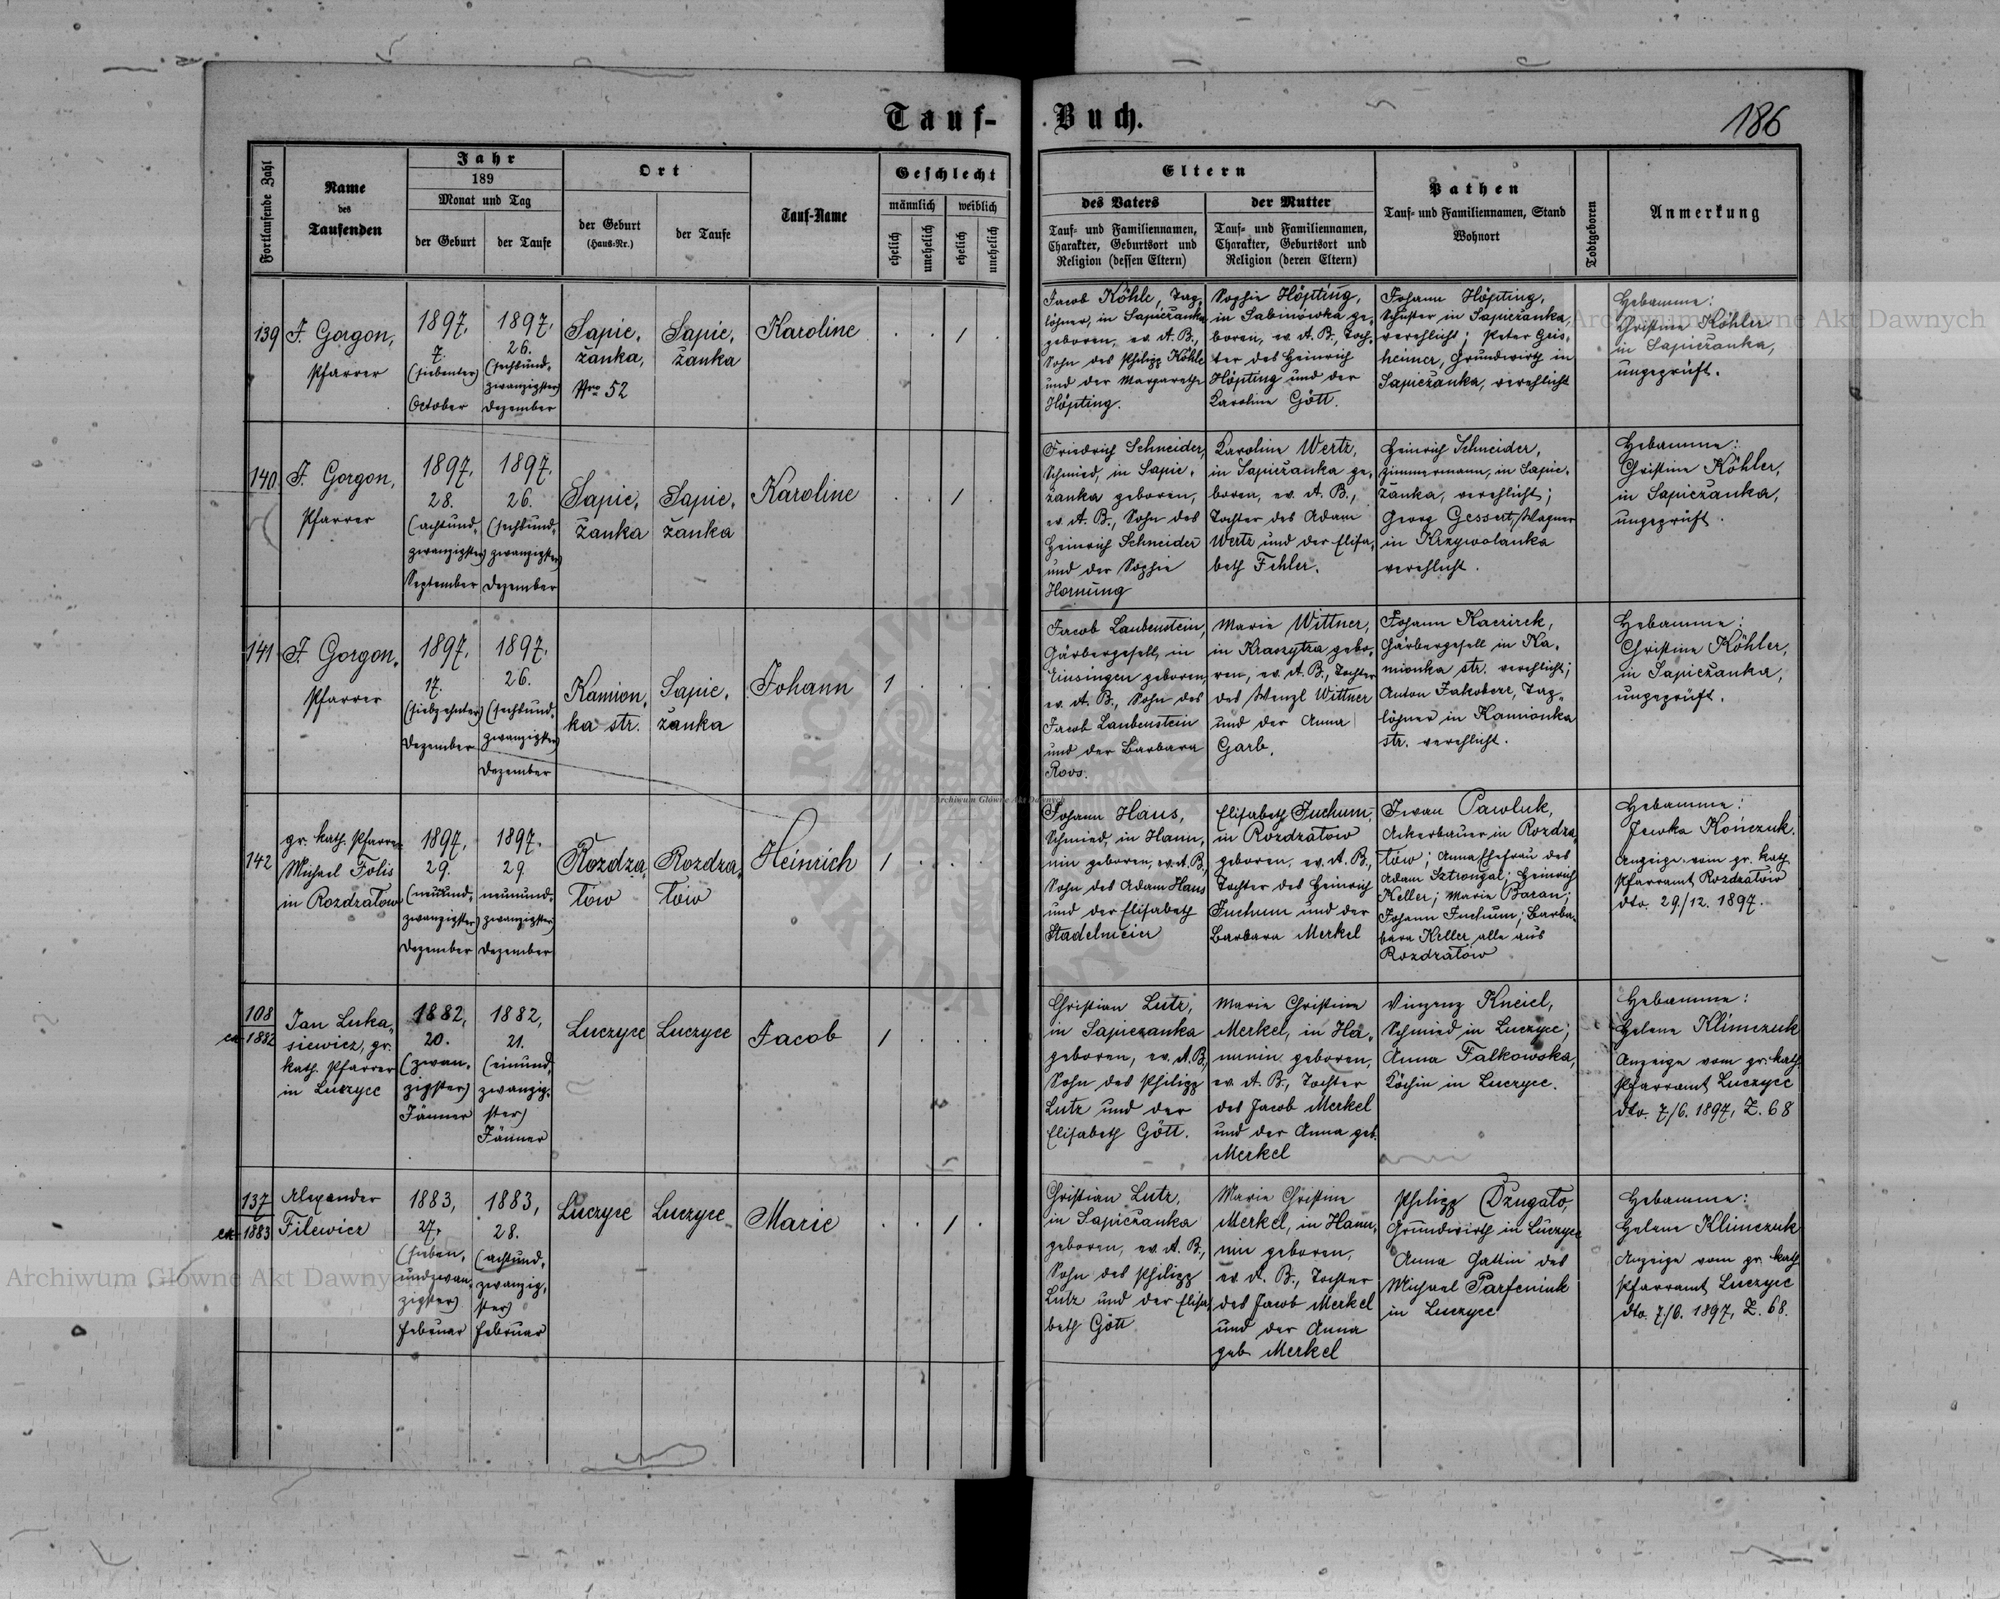 Tauf-Buch.
186
Fortlaufende Zahl
Name
des
Taufenden
Jahr
189
Monat und Tag
der Geburt
der Taufe
Ort
der Geburt
(Haus-Nr.)
der Taufe
Tauf-Name
Geschlecht
männlich
weiblich
ehelich
unehelich
ehelich
unehelich
Eltern
des Vaters
Tauf- und Familiennamen,
Charakter, Geburtsort und
Religion (dessen Eltern)
der Mutter
Tauf- und Familiennamen,
Charakter, Geburtsort und
Religion (deren Eltern)
Pathen
Tauf- und Familiennamen, Stand
Wohnort
Todtgeboren
Anmerkung
139
F. Gorgon,
Pfarrer
1897,
7.
(siebenter)
October
1897,
26.
(sechsund-
zwanzigster)
Dezember
Sapie-
żanka,
Nro 52
Sapie-
żanka
Karoline
1
Jacob Köhle, Tag-
löhner, in Sapieżanka
geboren, ev. A. B.,
Sohn des Philipp Köhle
und der Margarethe
Höpting.
Sophie Höpting,
in Sabinówka ge-
boren, ev. A. B., Toch-
ter des Heinrich
Höpting und der
Karoline Gött.
Johann Höpting,
Schuster in Sapieżanka,
verehlicht; Peter Geis-
heimer, Grundwirth in
Sapieżanka, verehlicht
Hebamme:
Christine Köhler
in Sapieżanka,
ungeprüft.
140
F. Gorgon,
Pfarrer
1897,
28.
(achtund-
zwanzigster)
September
1897,
26.
(sechsund-
zwanzigster)
Dezember
Sapie-
żanka
Sapie-
żanka
Karoline
1
Friedrich Schneider,
Schmied, in Sapie-
żanka geboren,
ev. A. B., Sohn des
Heinrich Schneider
und der Sophie
Hornung
Karoline Wertz,
in Sapieżanka ge-
boren, ev. A. B.,
Tochter des Adam
Wertz und der Elisa-
beth Fehler.
Heinrich Schneider,
Zimmermann, in Sapie-
żanka, verehlicht;
Georg Gessert, Wagner
in Krzywolanka
verehlicht.
Hebamme:
Christine Köhler,
in Sapieżanka,
ungeprüft.
141
F. Gorgon,
Pfarrer
1897,
17.
(siebzehnter)
Dezember
1897,
26.
(sechsund-
zwanzigster)
Dezember
Kamion-
ka str.
Sapie-
żanka
Johann
1
Jacob Laubenstein,
Gärbergesell, in
Einsingen geboren,
ev. A. B., Sohn des
Jacob Laubenstein
und der Barbara
Roos.
Marie Wittner,
in Krasnytra gebo-
ren, ev. A. B., Tochter
des Wenzl Wittner
und der Anna
Garb.
Johann
Gärbergesell in Ka-
mionka str. verehlicht;
Anton Jakober, Tag-
löhner in Kamionka
str. verehlicht.
Hebamme:
Christine Köhler,
in Sapieżanka,
ungeprüft.
142
gr. kath. Pfarrer
Michael Folis
in Rozdzałow
1897,
29.
(neunund-
zwanzigster)
Dezember
1897.
29.
neunund-
zwanzigster)
Dezember
Rozdza-
łow
Rozdza-
łów
Heinrich
1
Johann Haus,
Schmied, in Hann-
nin geboren, ev. A. B.,
Sohn des Adam Haus
und der Elisabeth
Stadelmeier
Elisabeth Juchum,
in Rozdzałow
geboren, ev. A. B.,
Tochter des Heinrich
Juchum und der
Barbara Merkel
Iwan Pawluk,
Ackerbauer in Rozdza-
łow; Anna Ehefrau des
Adam Sztrongal; Heinrich
Keller; Marie Baran;
Johann Juchum; Barba-
bara Keller alle aus
Rozdzałow
Hebamme:
Jewka Kończuk.
Anzeige vom gr. kath.
Pfarramt Rozdzałow
dto. 29/12. 1897.
108
ex 1882
Jan Luka-
siewicz, gr.
kath. Pfarrer
in Luczyce
1882,
20.
(zwan-
zigster)
Jänner
1882,
21.
(einund-
zwanzig-
ster)
Jänner
Luczyce
Luczyce
Jacob
1
Christian Lutz,
in Sapieżanka
geboren, ev. A. B.,
Sohn des Philipp
Lutz und der
Elisabeth Gött.
Marie Christine
Merkel, in Ha-
nunin geboren,
ev. A. B., Tochter
des Jacob Merkel
und der Anna geb.
Merkel
Vinzenz Kneiel,
Schmied in Luczyce;
Anna Falkowska,
Köchin in Luczyce.
Hebamme:
Helene Klimczuk
Anzeige vom gr. kath.
Pfarramt Luczyce
dto. 7/6. 1897, Z. 68
137
ex 1883
Alexander
Filewicz
1883,
27.
(sieben-
undzwan-
zigster)
Februar
1883,
28.
(achtund-
zwanzig-
ster)
Februar
Luczyce
Luczyce
Marie
1
Christian Lutz,
in Sapieżanka
geboren, ev. A. B.,
Sohn des Philipp
Lutz und der Elisa-
beth Gött
Marie Christine
Merkel, in Hann-
nin geboren,
ev. A. B., Tochter
des Jacob Merkel
und der Anna
geb. Merkel
Philipp Dzugało,
Grundwirth in Luczyce
Anna Gattin des
Michael Parfeniuk
in Luczyce
Hebamme:
Helene Klimczuk
Anzeige vom gr. kath.
Pfarramt Luczyce
dto. 7/6. 1897, Z. 68.
Archiwum Główne Akt Dawnych
Archiwum Główne Akt Dawnych
Archiwum Główne Akt Dawnych